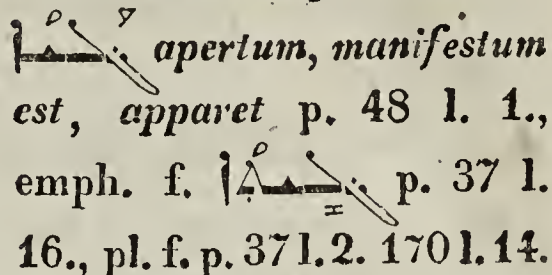 apertum, manifestum
est, apparet p. 48 l. 1.,
emph. f. p. 37 l.
16., pl. f. p. 37 l. 2. 170 l. 14.